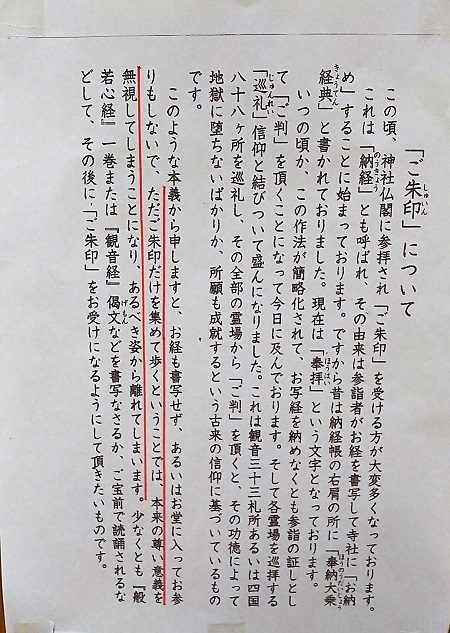 「ご朱印」について
この頃、神社仏閣に参拝され「ご朱印」を受ける方が大変多くなっております。
これは「納経」とも呼ばれ、その由来は参詣者がお経を書写して寺社に「お納
め」することに始まっております。ですから昔は納経帳の右肩の所に「奉納大乗
経典」と書かれておりました。現在は「奉拝」という文字となっております。
いつの頃か、この作法が簡略化されて、お写経を納めなくとも参詣の証しとし
て「ご判」を頂くことになって今日に及んでおります。そして各霊場を巡拝する
「巡礼」信仰と結びついて盛んになりました。これは観音三十三札所あるいは四国
八十八ヶ所を巡礼し、その全部の霊場から「ご判」を頂くと、その功徳によって
地獄に堕ちないばかりか、所願も成就するという古来の信仰に基づいているもの
です。
このような本義から申しますと、お経も書写せず、あるいはお堂に入ってお参
りもしないで、ただご朱印だけを集めて歩くということでは、本来の尊い意義を
無視してしまうことになり、あるべき姿から離れてしまいます。少なくとも『般
若心経』一巻または『観音経』偈文などを書写なさるか、ご宝前で読誦されるな
どして、その後に「ご朱印」をお受けになるようにして頂きたいものです。